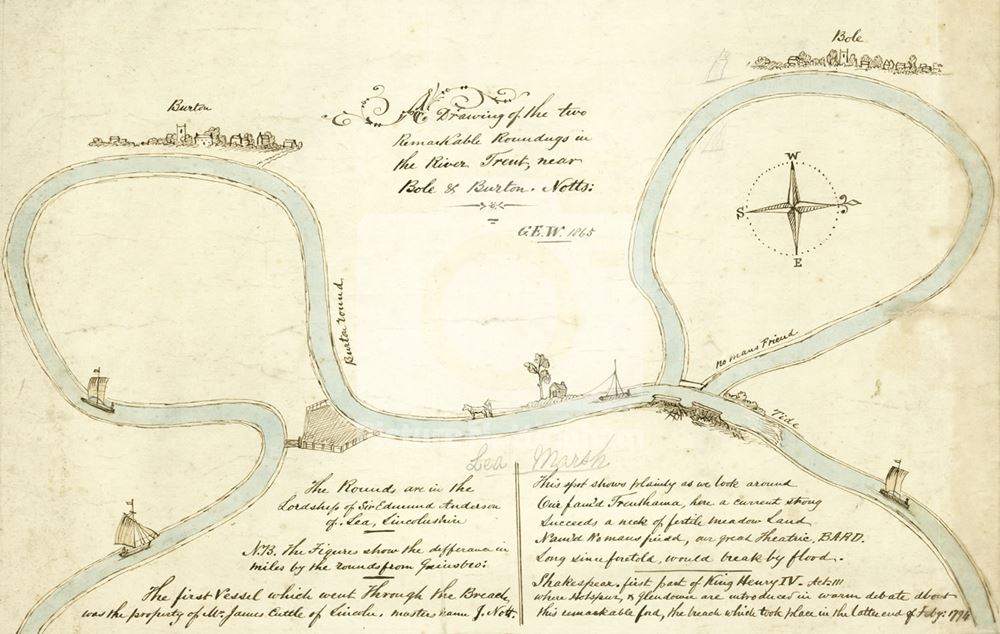 Bole
Burton
A Drawing of the two
Remarkable Roundugs in
the River Trent, near
Bole & Burton. Notts:
G.E.W. 1865
W
S
E
Burton round
no mans Friend
Lea Marsh
The Rounds are in the
Lordships of Sir Edmund Anderson
of Lea, Lincolnshire
N.B. The Figures show the differance in
miles by the rounds from Gainsbro:
The first Vessel which went through the Breach,
was the property of Mr. James Cuttle of Lincoln, master name J. Nott.
This spot shows plainly as we look around
Our fam'd Trenthama, here a current strong
Succeeds a neck of fertile meadow Land
Nam'd No mans friend, our great Theatric, BARD.
Long since foretold, would break by flood.
Shakespear, first part of King Henry IV. Act III
where Hotspur, & Glendower are introduced in warm debate about
this remarkable ford, the breach which took place in the latter end of Feby: 1794